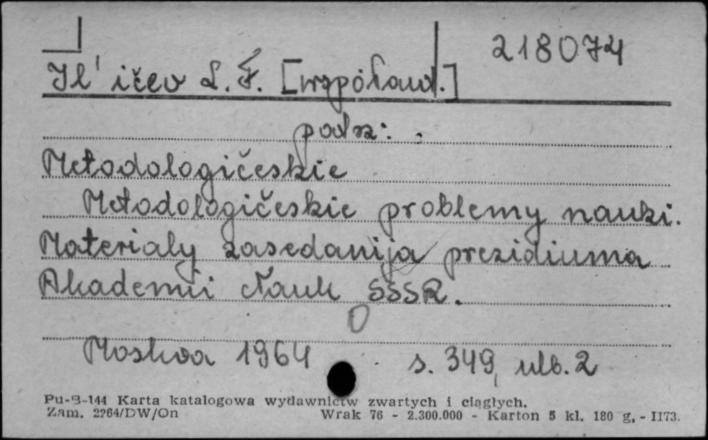 218074
Il'ičev L. F. [współaut.]
podsz:
Metodologičeskie
Metodologičeskie problemy nauki.
Materialy zasedanija prezidiuma
Akademii Nauk SSSR.
Moskva 1964 s. 349, ulb. 2
Pu-B-144 Karta katalogowa wydawnictw zwartych i ciągłych.
Zam. 2264/DW/On Wrak 76 - 2.300.000 - Karton 5 kl. 180 g. - II73.